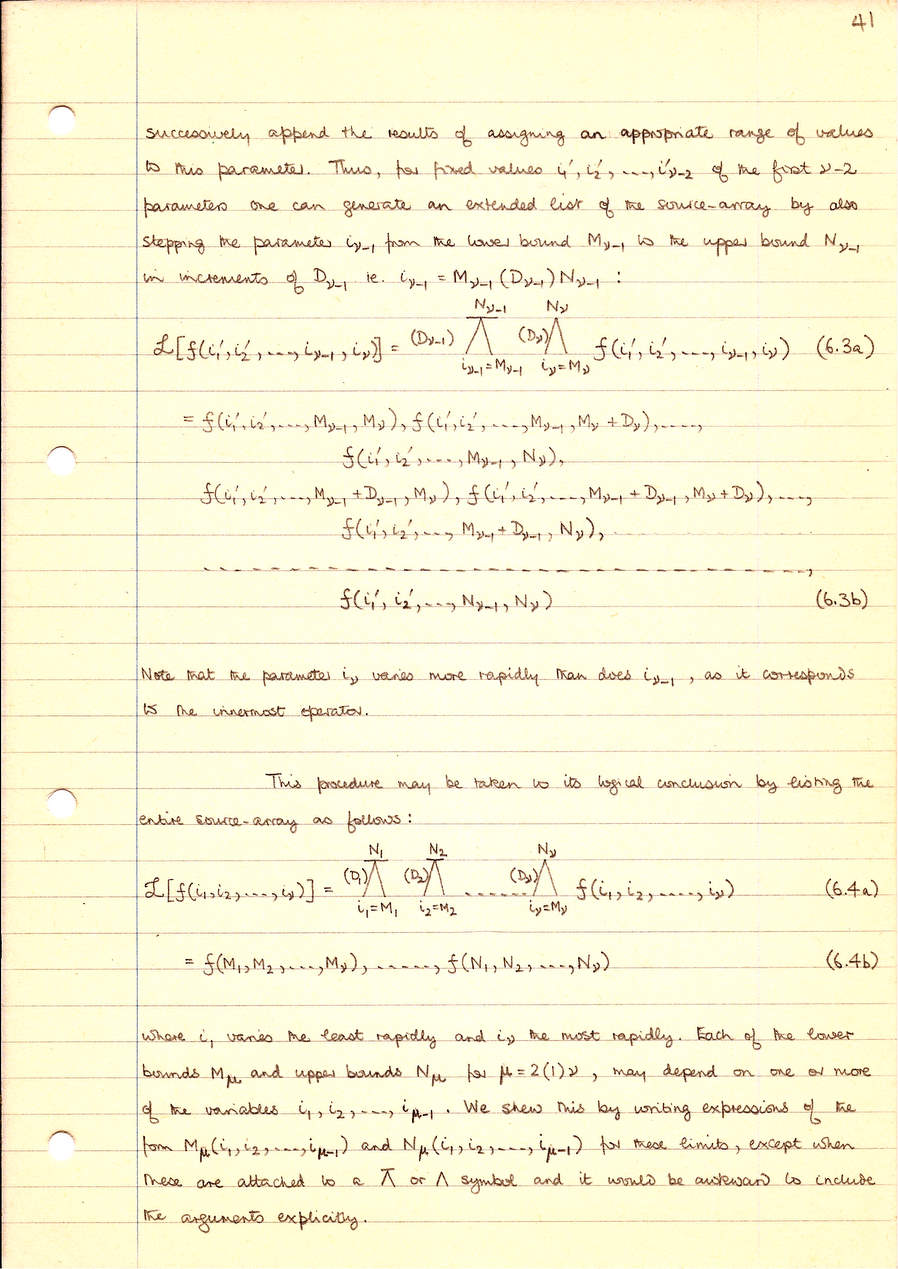 41
successively append the results of assigning an appropriate range of values
to this parameter. Thus, for fixed values i₁′, i₂′, ...., i′ᵥ₋₂ of the first ν-2
parameters one can generate an extended list of the source-array by also
stepping the parameter iᵥ₋₁ from the lower bound Mᵥ₋₁ to the upper bound Nᵥ₋₁
in increments of Dᵥ₋₁ ie. iᵥ₋₁ = Mᵥ₋₁ (Dᵥ₋₁) Nᵥ₋₁ :
Nᵥ₋₁ Nᵥ
ℒ[f(i₁′, i₂′, ...., iᵥ₋₁, iᵥ)] = (Dᵥ₋₁) ⊼ (Dᵥ) Λ f(i₁′, i₂′, ...., iᵥ₋₁, iᵥ) (6.3a)
iᵥ₋₁=Mᵥ₋₁ iᵥ=Mᵥ
= f(i₁′, i₂′, ...., Mᵥ₋₁, Mᵥ), f(i₁′, i₂′, ...., Mᵥ₋₁, Mᵥ + Dᵥ), ....,
f(i₁′, i₂′, ...., Mᵥ₋₁, Nᵥ),
f(i₁′, i₂′, ...., Mᵥ₋₁ + Dᵥ₋₁, Mᵥ), f(i₁′, i₂′, ...., Mᵥ₋₁ + Dᵥ₋₁, Mᵥ + Dᵥ), ....,
f(i₁′, i₂′, ...., Mᵥ₋₁ + Dᵥ₋₁, Nᵥ), ..........
..............................,
f(i₁′, i₂′, ...., Nᵥ₋₁, Nᵥ) (6.3b)
Note that the parameter iᵥ varies more rapidly than does iᵥ₋₁, as it corresponds
to the innermost operator.
This procedure may be taken to its logical conclusion by listing the
entire source-array as follows :
N₁ N₂ Nᵥ
ℒ[f(i₁, i₂, ...., iᵥ)] = (D₁) ⊼ (D₂) ⊼ ...... (Dᵥ) Λ f(i₁, i₂, ...., iᵥ) (6.4a)
i₁=M₁ i₂=M₂ iᵥ=Mᵥ
= f(M₁, M₂, ...., Mᵥ), ......, f(N₁, N₂, ...., Nᵥ) (6.4b)
where i₁ varies the least rapidly and iᵥ the most rapidly. Each of the lower
bounds M_μ and upper bounds N_μ for μ = 2(1)ν, may depend on one or more
of the variables i₁, i₂, ...., i_μ₋₁. We shew this by writing expressions of the
form M_μ(i₁, i₂, ...., i_μ₋₁) and N_μ(i₁, i₂, ...., i_μ₋₁) for these limits, except when
these are attached to a ⊼ or Λ symbol and it would be awkward to include
the arguments explicitly.